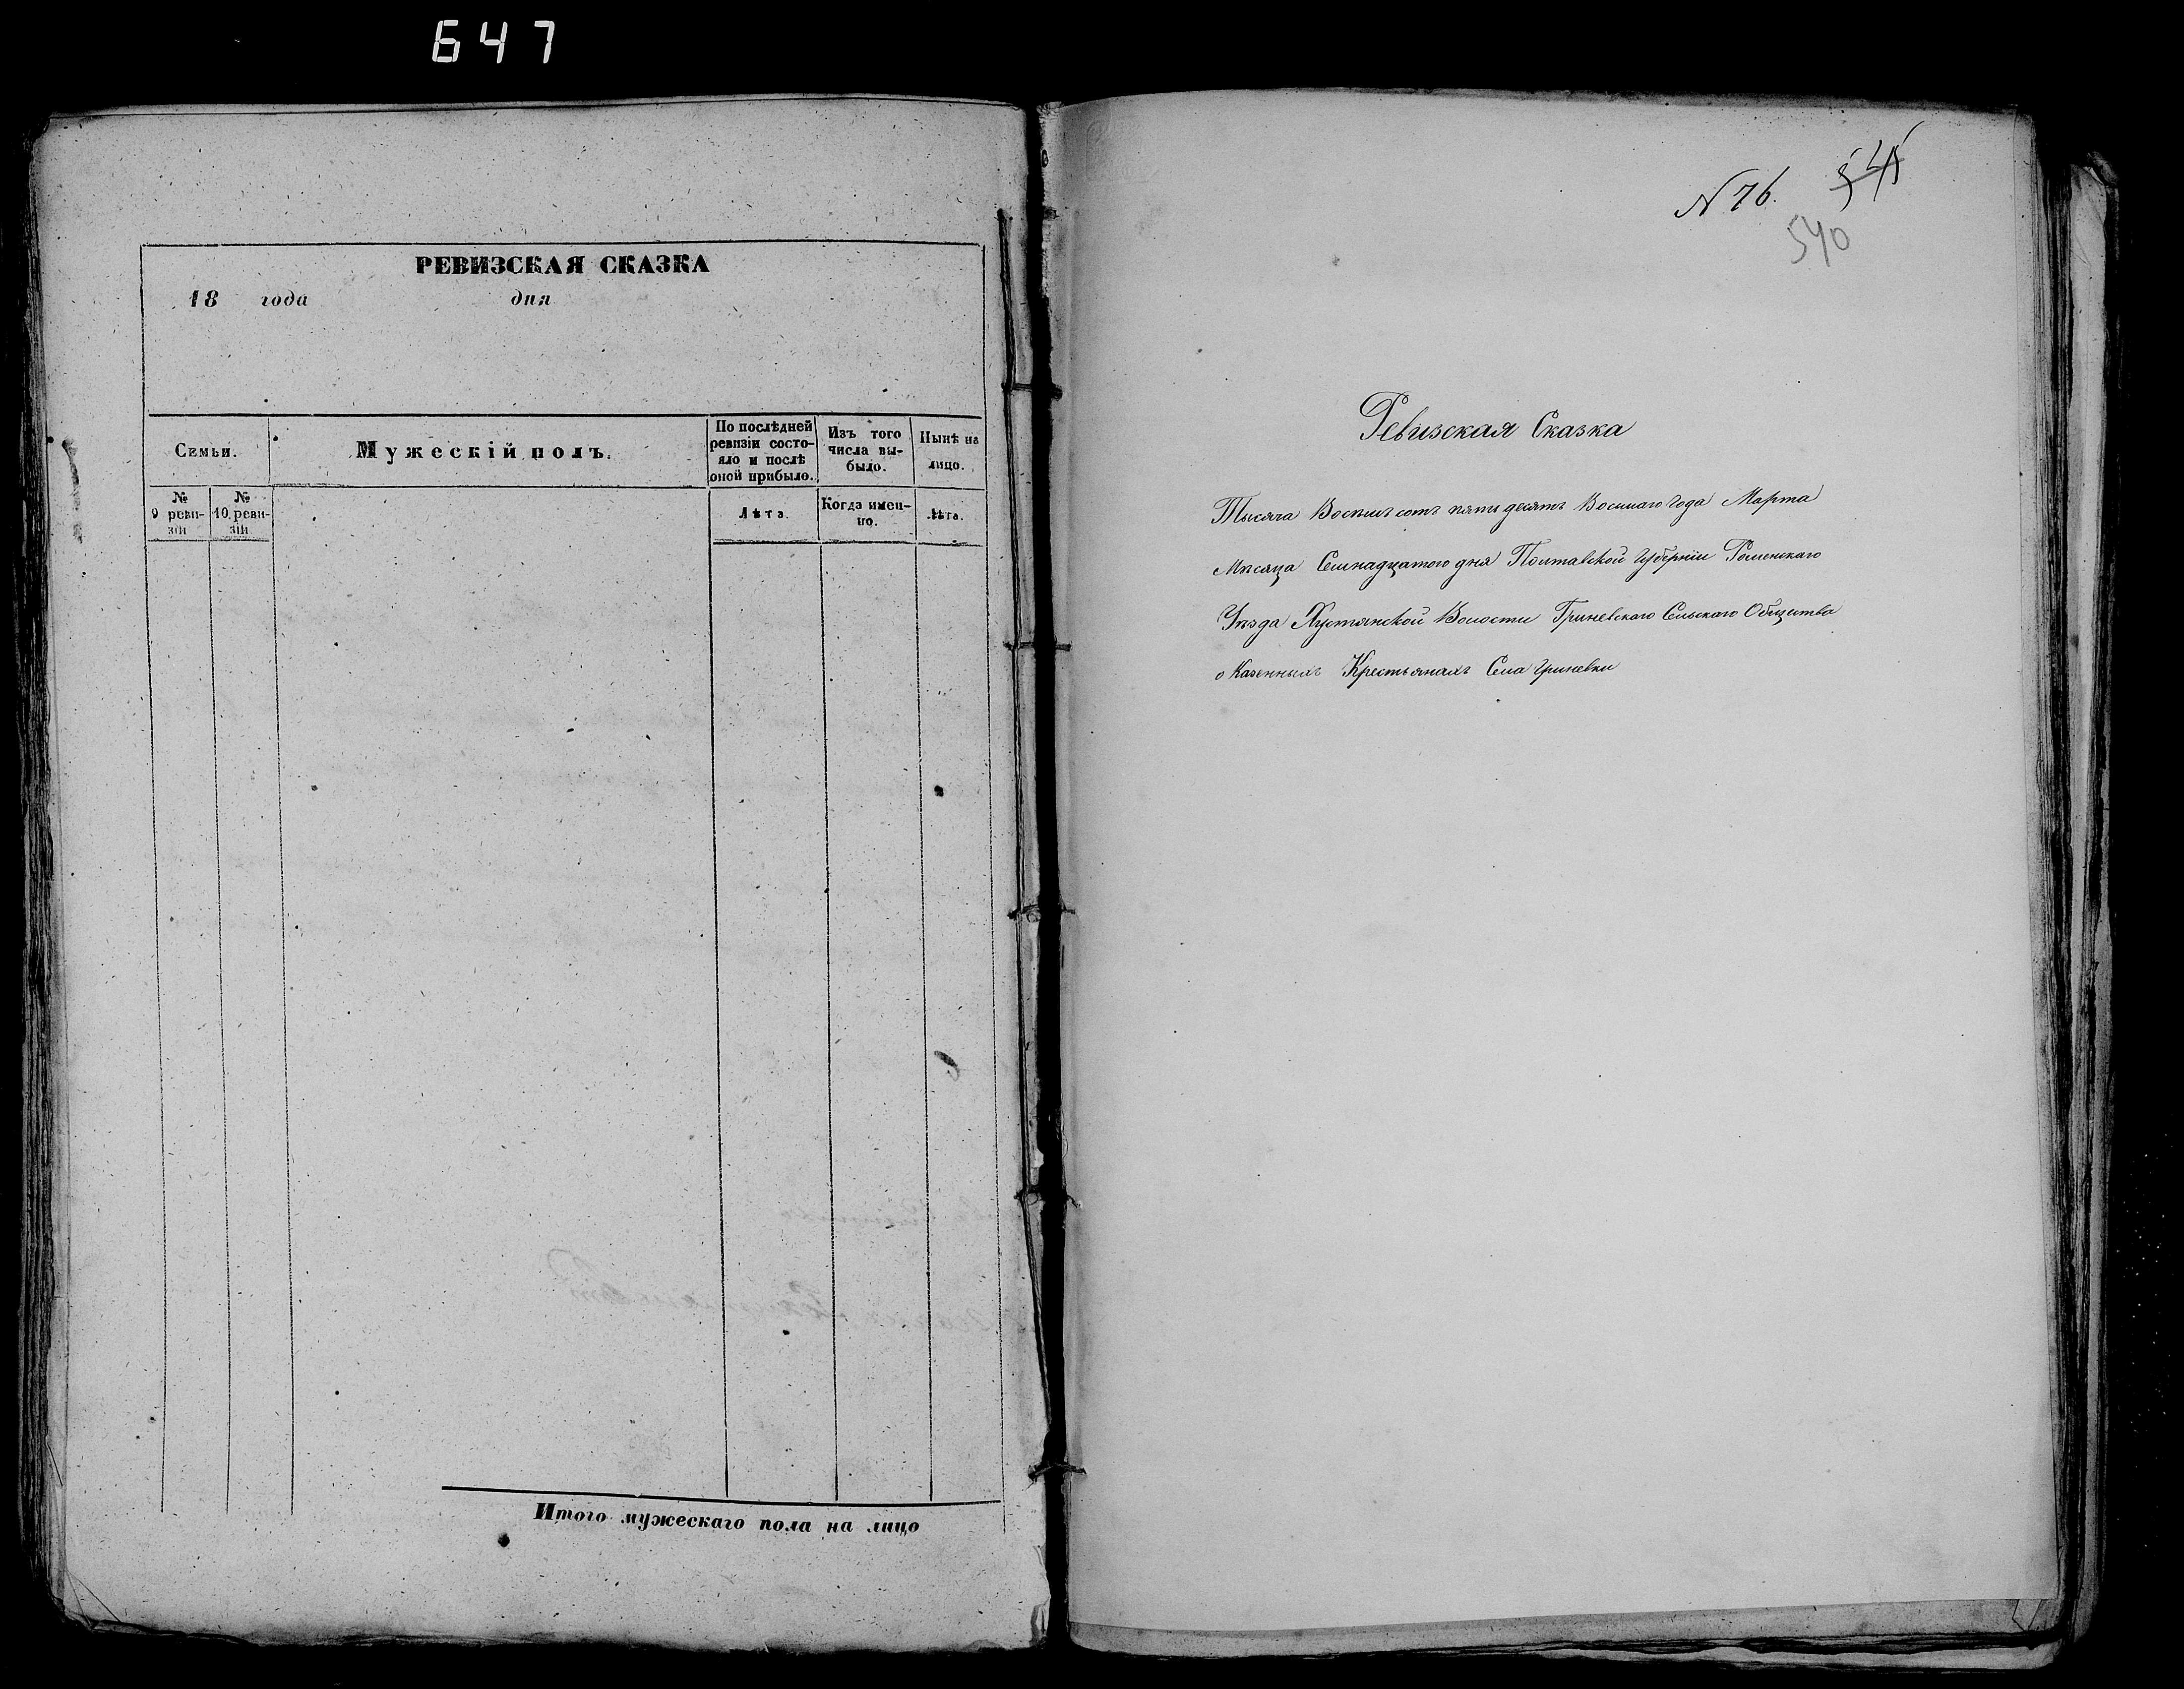 647
РЕВИЗСКАЯ СКАЗКА
18 года дня
Семьи.
Мужескій полъ.
По послѣдней ревизіи состо-
яло и послѣ
оной прибыло.
Изъ того
числа вы-
было.
Нынѣ на
лицо.
№
9 реви-
зіи
№
10 реви-
зіи
Лѣта.
Когда имен-
но.
Лѣта.
Итого мужескаго пола на лицо
N 76.
540
Ревизская Сказка
Тысяча Восемьсотъ пятьдесятъ Восьмаго года Марта
Мѣсяца Семнадцатого дня Полтавской Губерніи Роменскаго
Уѣзда Хустянской Волости Гриневскаго Сельскаго Общества
о Казенныхъ Крестьянахъ Села Гриневки